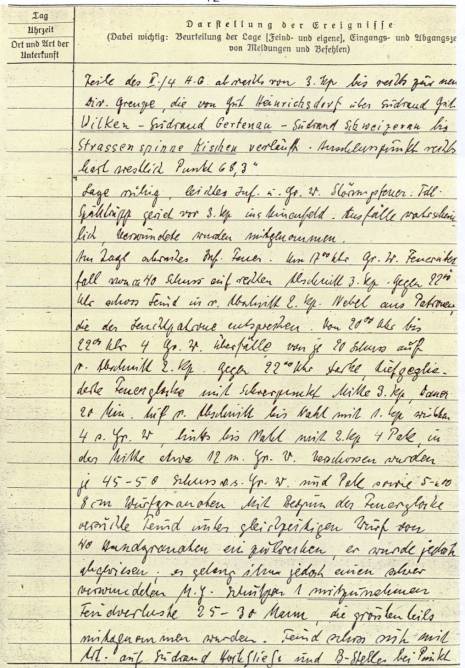 Tag
Uhrzeit
Ort und Art der
Unterkunft
Darstellung der Ereignisse
(Dabei wichtig: Beurteilung der Lage [Feind- und eigene], Eingangs- und Abgangsze
von Meldungen und Befehlen)
Teile des I./4 abwärts von 3. Kp bis rechts zur neu
Div. Grenze, die von Gut Heinrichsdorf über Südrand Gut
Wilken – Südrand Gertenau – Südrand bis
Strassenspinne verläuft. Anschlusspunkt rechts
hart westlich Punkt 68,3"
Lage ruhig, leichtes Inf. u. Gr. W. Störungsfeuer.
Spähtrupp geriet vor 3. Kp ins Minenfeld. Ausfälle wahrschein
lich, Verwundete wurden mitgenommen.
Am Tage Inf. Feuer. Um 17⁰⁰ Uhr Gr. W. Feuerüber
fall von ca 40 Schuss auf rechten Abschnitt 3. Kp. Gegen 22⁰⁰
Uhr schoss Feind in r. Abschnitt 2. Kp. Nebel aus Patronen,
die der Leuchtpatrone entsprechen. Von 20⁰⁰ Uhr bis
22⁰⁰ Uhr 4 Gr. W. Überfälle von je 20 Schuss auf
r. Abschnitt 2. Kp. Gegen 22⁰⁰ Uhr starke tiefgeglie-
derte Feuerglocke mit Schwerpunkt Mitte 3. Kp, Dauer
20 Min. Auf r. Abschnitt bis Naht mit 1. Kp wirkten
4 s. Gr. W, links bis Naht mit 2. Kp 4 Pak, in
der Mitte etwa 12 m. Gr. W. Verschossen wurden
je 45-50 Schuss s. Gr. W. und Pak sowie
8 cm Wurfgranaten. Mit Beginn der Feuerglocke
versuchte Feind unter gleichzeitigem Wurf von
40 Handgranaten einzubrechen, er wurde jedoch
abgewiesen. es gelang ihm jedoch einen schwer
verwundeten M.G. Schützen 1 mitzunehmen
Feindverluste 25-30 Mann, die größtenteils
mitgenommen wurden. Feind schoss sich mit
Art. auf Südrand und B-Stelle bei Punkt